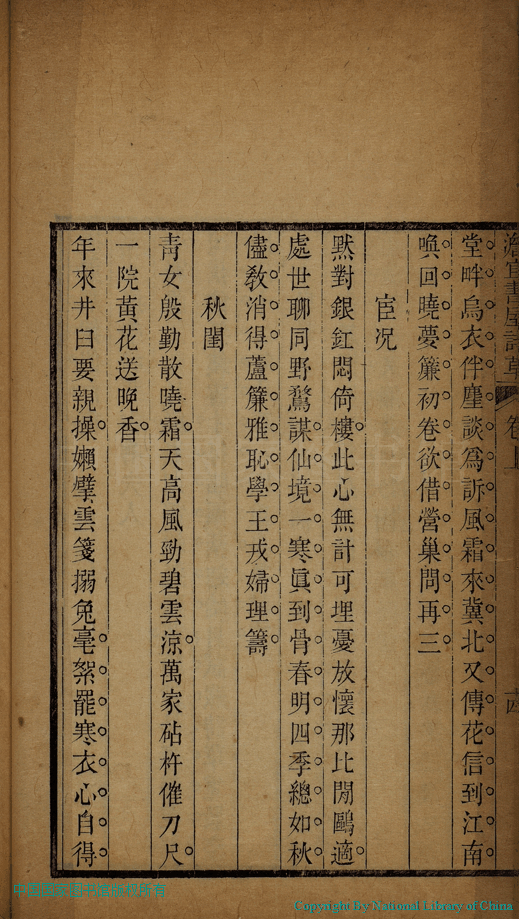 堂畔烏衣伴塵談為訴風霜來冀北又傳花信到江南
喚回曉夢簾初卷欲借營巢問再三
宦况
默對銀釭悶倚樓此心無計可埋憂放懷那比閒鷗適
處世聊同野鶩謀仙境一寒眞到骨春明四季總如秋
儘敎消得蘆簾雅恥學王戎婦理籌
秋閨
靑女殷勤散曉霜天高風勁碧雲涼萬家砧杵催刀尺
一院黃花送晚香
年來井臼要親操嬾擘雲箋搦兔毫絮罷寒衣心自得
Copyright by National Library of China